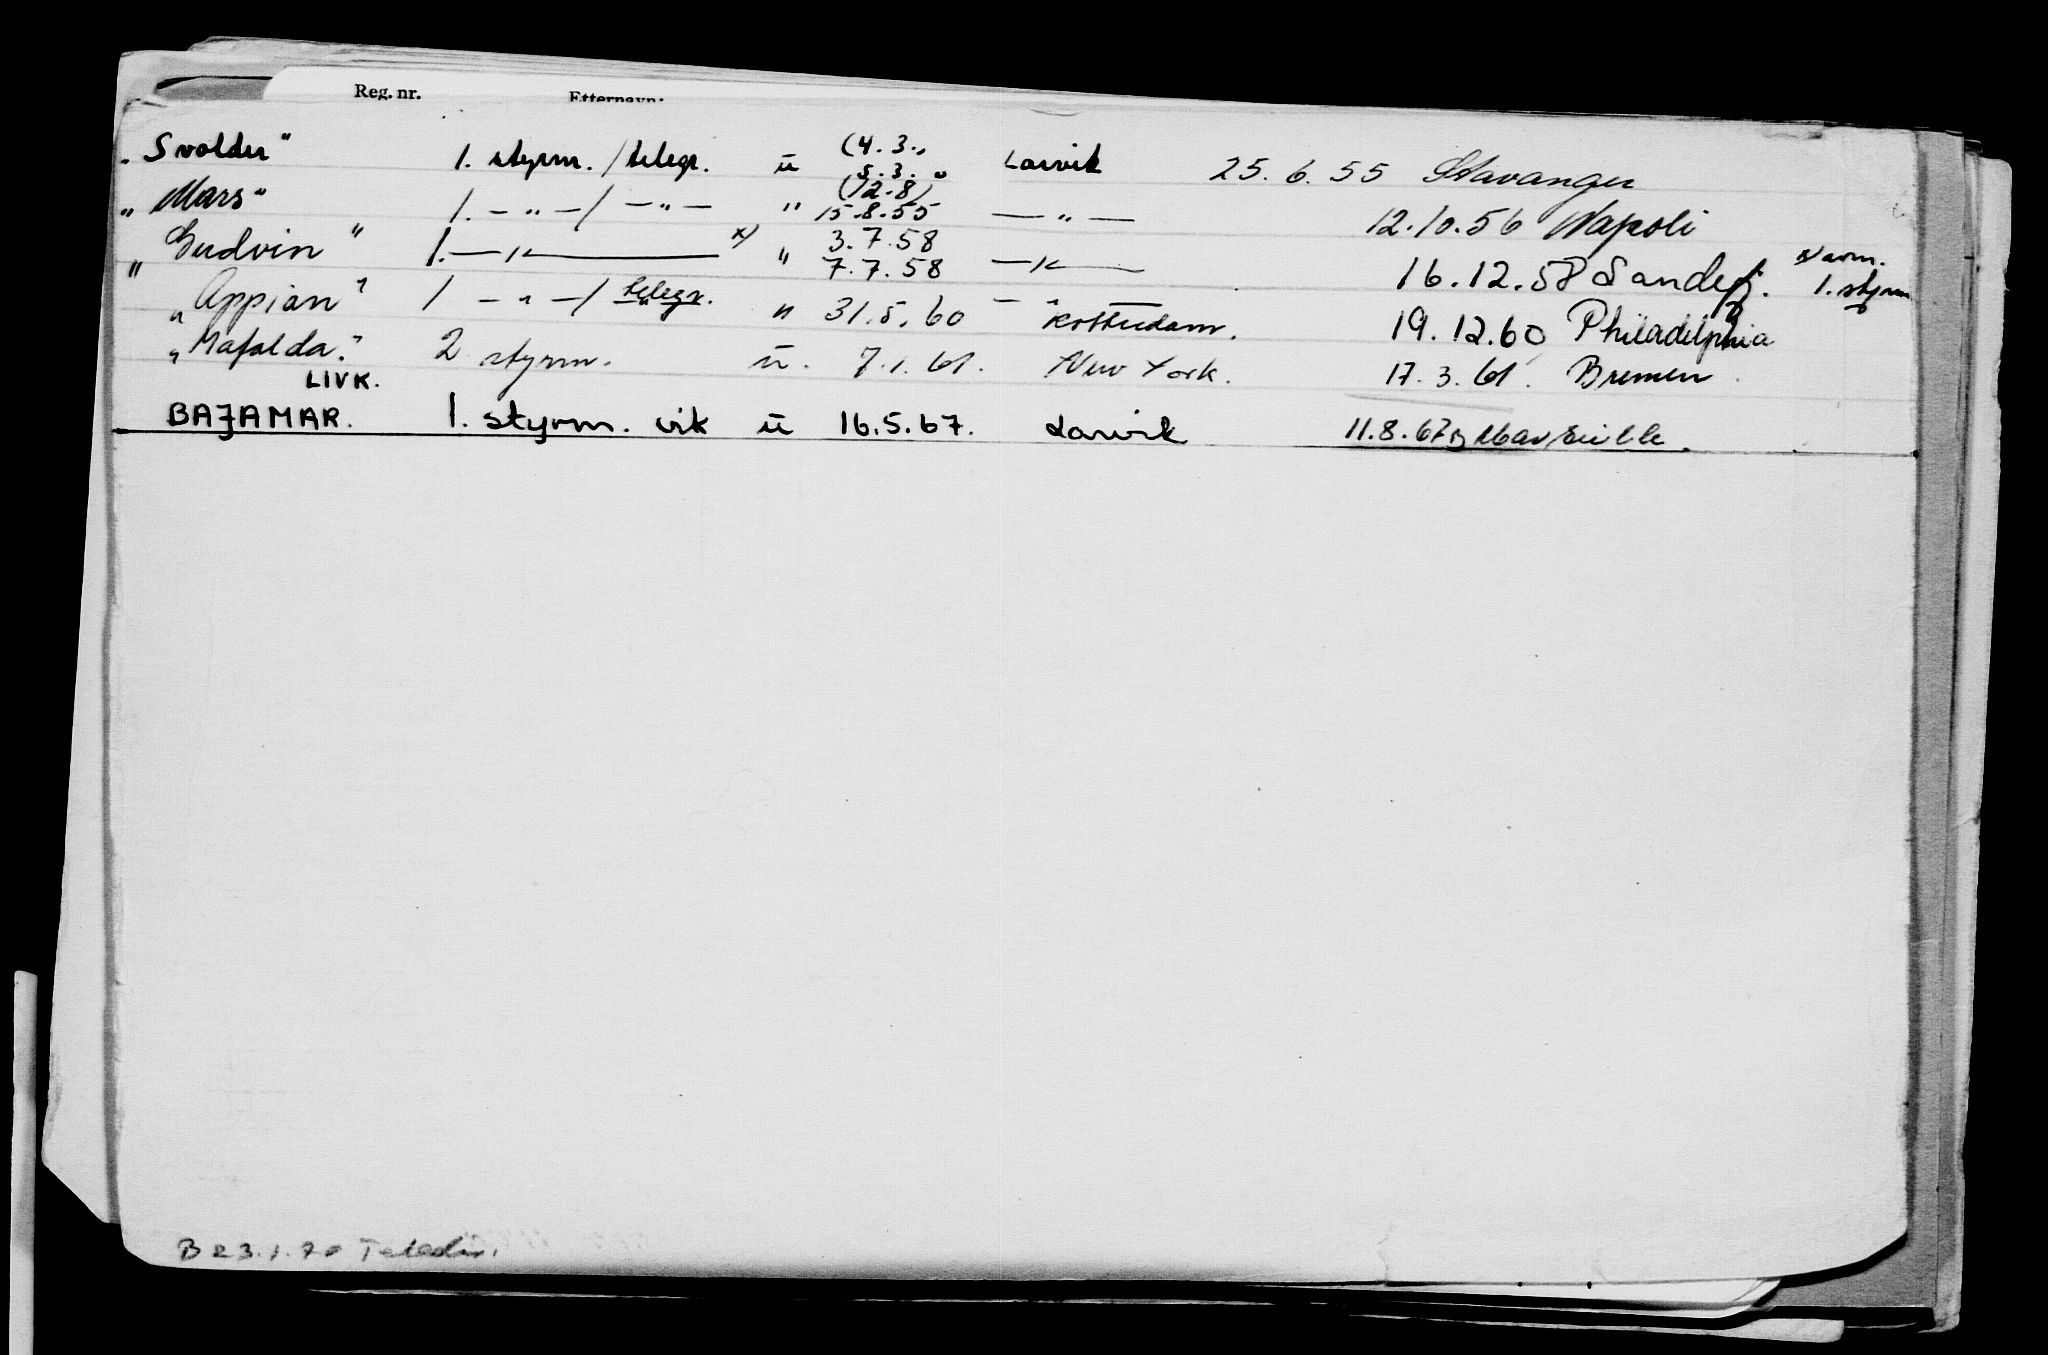 Reg. nr. Etternavn:
„Svolder" 1. styrm./telegr. ü (4.3., 5.3.„ Larvik 25.6.55 Stavanger
„Mars" 1. — " —/ — " — " (12.8) 15.8.55 — " — 12.10.56 Napoli
„Gudvin" 1. — " — x) " 3.7.58 7.7.58 — " — 16.12.58 Sandefj. x) avm. 1. styrm
„Appian" 1 — " —/ telegr. " 31.5.60 — " — Rotterdam. 19.12.60 Philadelphia
„Mafalda." 2 styrm. ü. 7.1.61. New York. 17.3.61. Bremen
LIVK.
BAJAMAR. 1. styrm. vik ü 16.5.67. Larvik 11.8.67 Marseille.
B 23.1.70